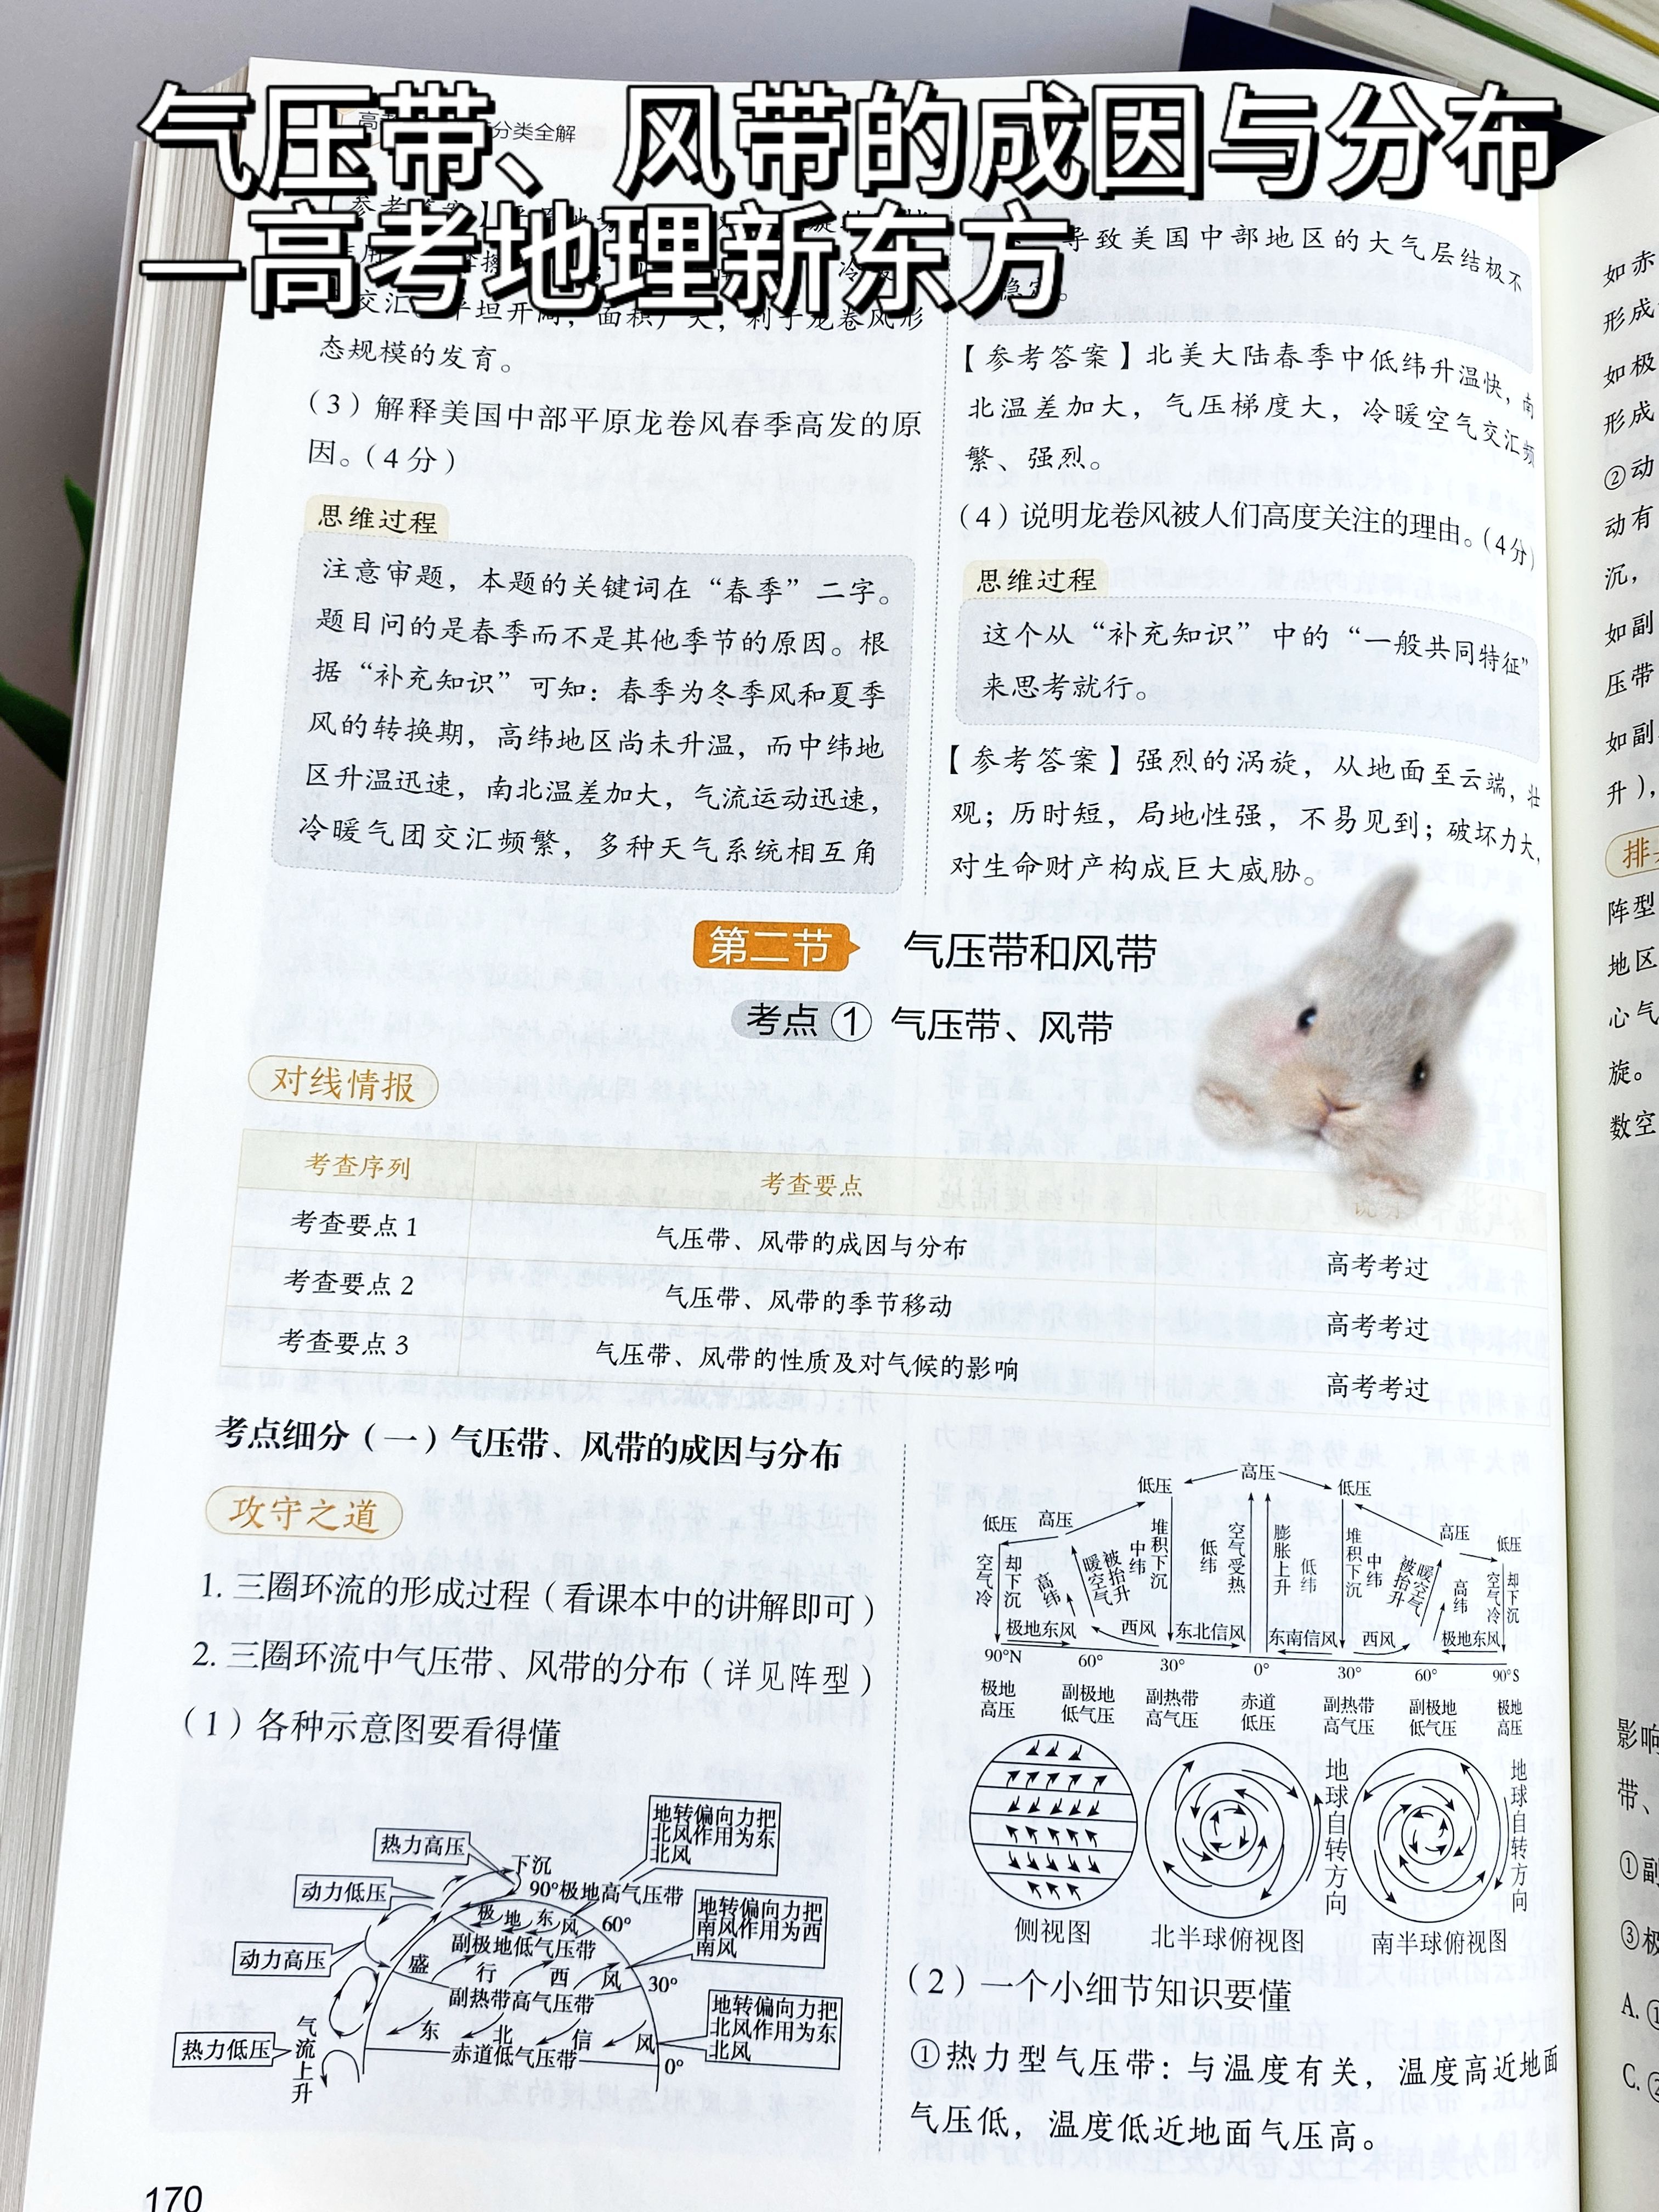 气压带、风带的成因与分布
—高考地理新东方
分类全解
态规模的发育。
(3)解释美国中部平原龙卷风春季高发的原
因。(4分)
思维过程
注意审题,本题的关键词在“春季”二字。
题目问的是春季而不是其他季节的原因。根
据“补充知识”可知:春季为冬季风和夏季
风的转换期,高纬地区尚未升温,而中纬地
区升温迅速,南北温差加大,气流运动迅速,
冷暖气团交汇频繁,多种天气系统相互角
导致美国中部地区的大气层结极不
稳定。
【参考答案】北美大陆春季中低纬升温快,南
北温差加大,气压梯度大,冷暖空气交汇频
繁、强烈。
(4)说明龙卷风被人们高度关注的理由。(4分)
思维过程
这个从“补充知识”中的“一般共同特征”
来思考就行。
【参考答案】强烈的涡旋,从地面至云端,壮
观;历时短,局地性强,不易见到;破坏力大,
对生命财产构成巨大威胁。
第二节 气压带和风带
考点① 气压带、风带
对线情报
考查序列 考查要点
考查要点1 气压带、风带的成因与分布 高考考过
考查要点2 气压带、风带的季节移动 高考考过
考查要点3 气压带、风带的性质及对气候的影响 高考考过
考点细分(一)气压带、风带的成因与分布
攻守之道
1. 三圈环流的形成过程(看课本中的讲解即可)
2. 三圈环流中气压带、风带的分布(详见阵型)
(1)各种示意图要看得懂
热力高压
动力低压
动力高压
热力低压
气流上升
下沉
90°极地高气压带
极地东风
60°
副极地低气压带
盛行西风
30°
副热带高气压带
东北信风
赤道低气压带
0°
地转偏向力把
北风作用为东
北风
地转偏向力把
南风作用为西
南风
地转偏向力把
北风作用为东
北风
低压 高压 低压
低压 高压 高压 低压
空气冷却下沉
高纬
暖空气被抬升
中纬
堆积下沉
低纬
空气受热
膨胀上升
低纬
堆积下沉
中纬
暖空气被抬升
高纬
空气冷却下沉
极地东风 西风 东北信风 东南信风 西风 极地东风
90°N 60° 30° 0° 30° 60° 90°S
极地 副极地 副热带 赤道 副热带 副极地 极地
高压 低气压 高气压 低压 高气压 低气压 高压
地球自转方向
地球自转方向
侧视图 北半球俯视图 南半球俯视图
(2)一个小细节知识要懂
①热力型气压带:与温度有关,温度高近地面
气压低,温度低近地面气压高。
170
如赤
形成
如极
形成
②动
动有
沉,
如副
压带
如副
升),
阵型
地区
心气
旋。
数空
影响
带、
①副
③极
A.①
C.②